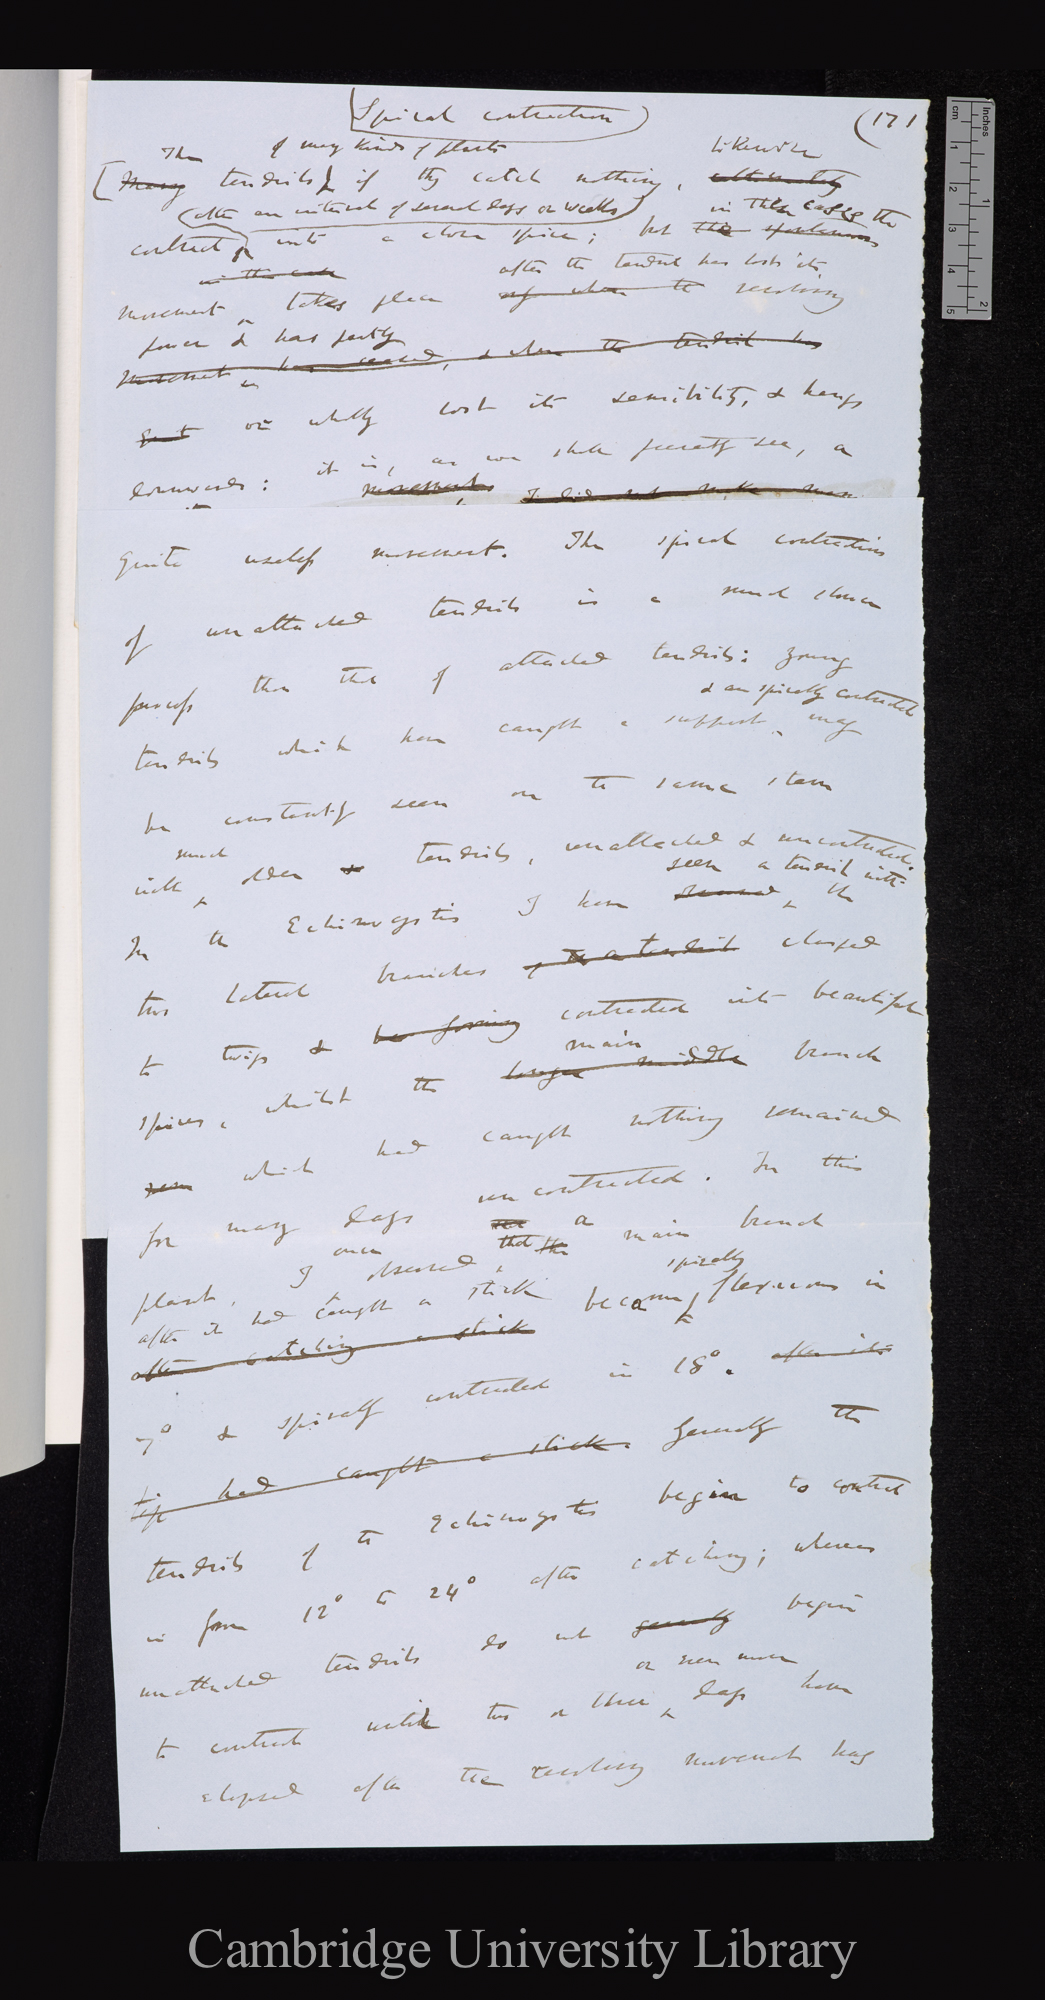 Spiral contraction
(171
The of many kinds of plants likewise
[Many tendrils, if they catch nothing, ultimately
(after an interval of several days or weeks) in these cases the
contract into a close spire; but the spontaneous
in the case after the tendril has lost its
movement takes place when the revolving
power & has partly
movement has ceased, & when the tendril has
or wholly lost its sensibility, & hangs
downwards: it is, as we shall presently see, a
movements I did not make
quite useless movement. The spiral contraction
of unattached tendrils is a much slower
process than that of attached tendrils: young
& are spirally contracted
tendrils which have caught a support may
be constantly seen on the same stem
much
with older & tendrils, unattached & uncontracted.
seen a tendril with
In the Echinocystis I have the
two lateral branches of a tendril clasped
to twigs & contracted into beautiful
main
spires, whilst the longer middle branch
which had caught nothing remained
for many days uncontracted. In this
once that the a
plant, I observed main branch
after it had caught a stick became spirally flexuous in
after catching a stick
7° & spirally contracted in 18°. after its
tip had caught a stick. Generally the
tendrils of the Echinocystis begin to contract
in from 12° to 24° after catching; whereas
unattached tendrils do not generally begin
or even more
to contract until two or three days have
elapsed after the revolving movement has
inches
cm
1
2
3
4
5
1
2
Cambridge University Library